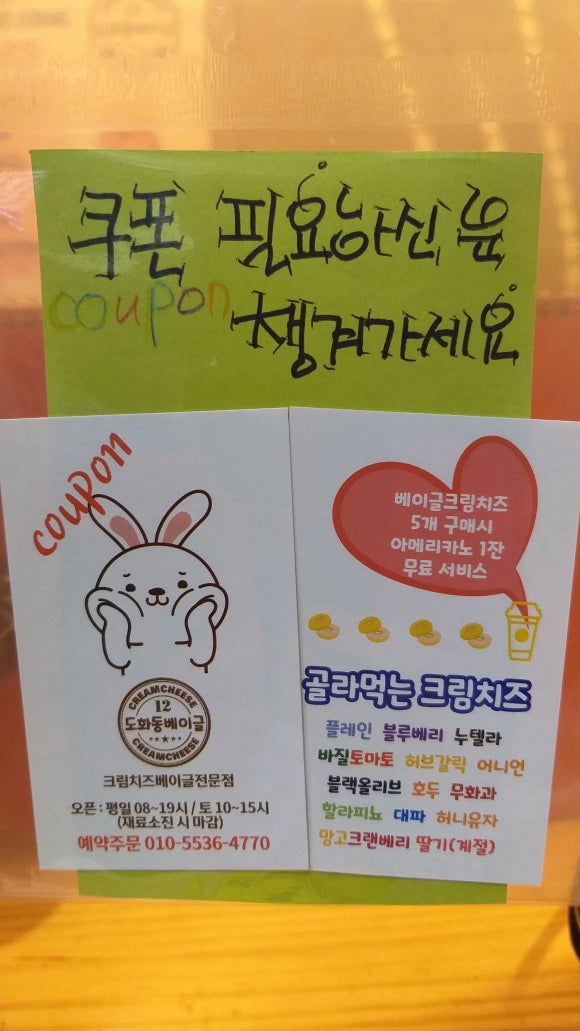 쿠폰 필요하신 분
coupon
챙겨가세요
coupon
CREAMCHEESE
12
도화동베이글
CREAMCHEESE
크림치즈베이글전문점
오픈 : 평일 08~19시 / 토 10~15시
(재료소진 시 마감)
예약주문 010-5536-4770
베이글크림치즈
5개 구매시
아메리카노 1잔
무료 서비스
골라먹는 크림치즈
플레인 블루베리 누텔라
바질토마토 허브갈릭 어니언
블랙올리브 호두 무화과
할라피뇨 대파 허니유자
망고크랜베리 딸기(계절)